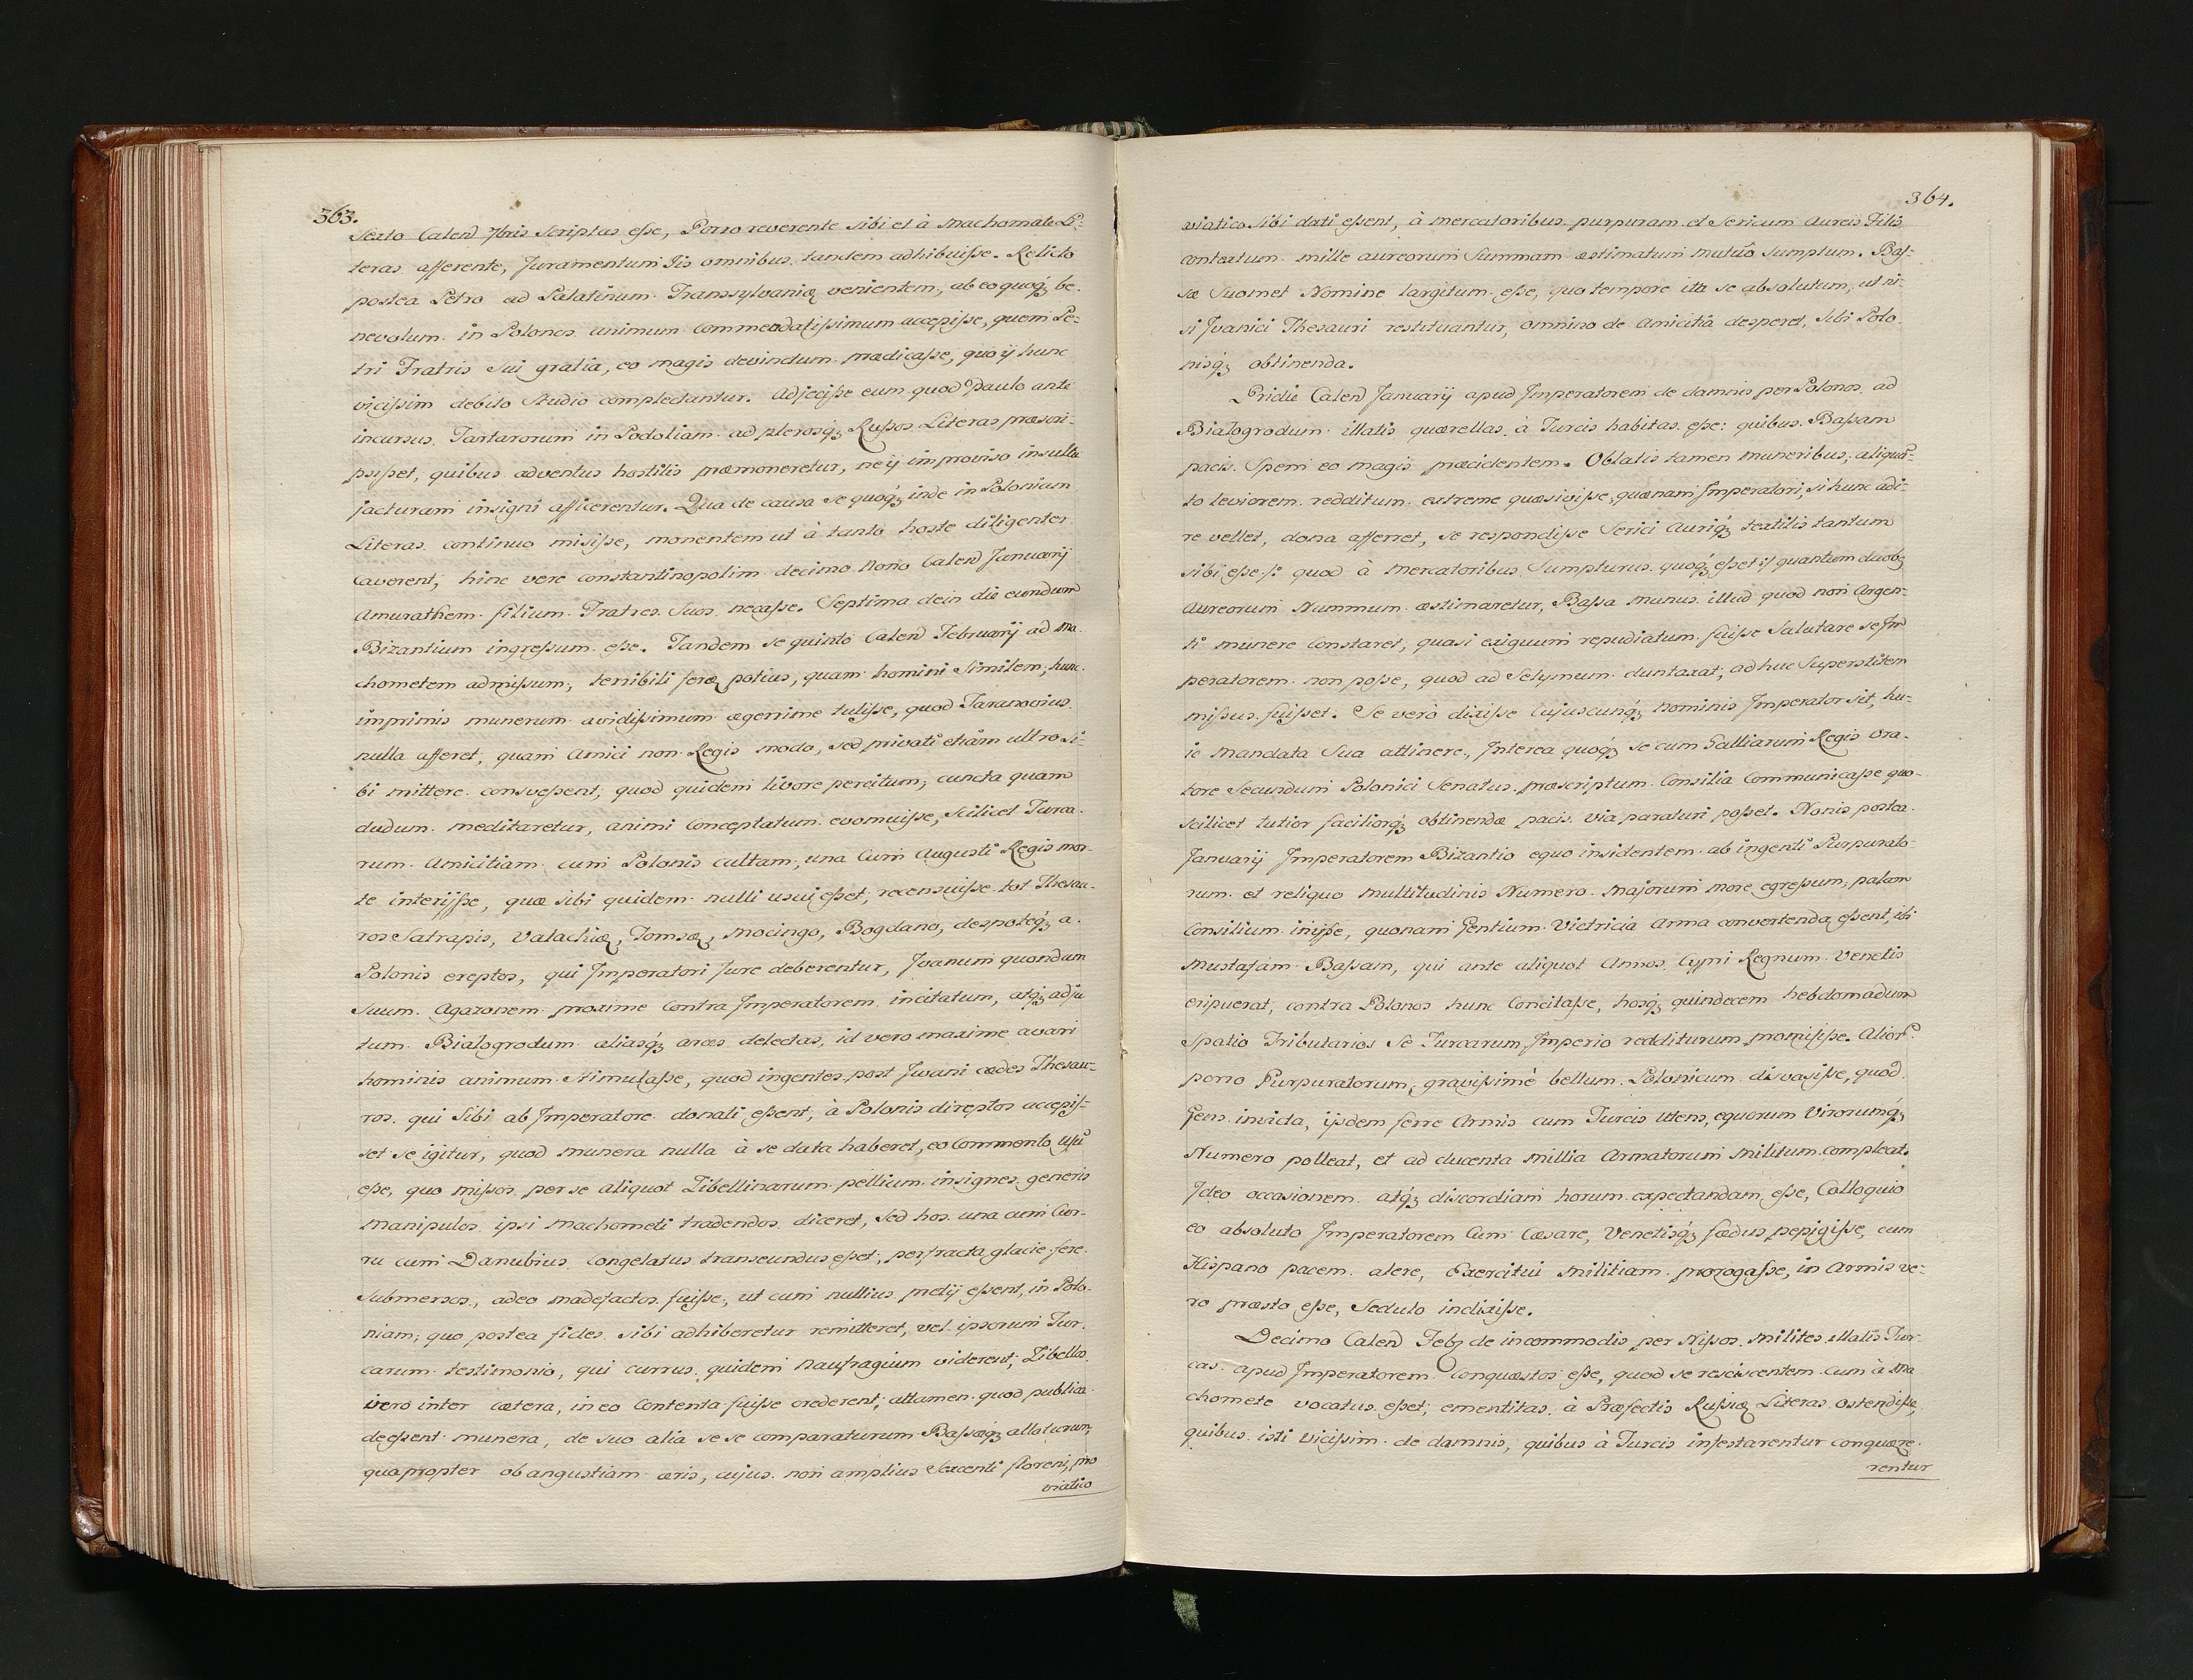 363.
Sexto Calend Jbris Scriptas esse, Porro reverente sibi et à Machomate Li-
teras afferente, Juramentum Iis omnibus tandem adhibuisse. Relicto
postea Petro ad Palatinum Transsylvaniæ venientem, ab eo quoq; be-
nevolum in Polonos animum commendatissimum accepisse, quem Pe-
tri Fratris sui gratia, eo magis devinctum prædicasse, quo ij hunc
vicissim debito Studio complectantur. Adjecisse eum quod paulo ante
incursus Tartarorum in Podoliam ad plerosq; Russos Literas præscri-
psisset, quibus adventus hostilis præmoneretur, ne ij improviso insultu
jacturam insigni afficerentur. Qua de causa se quoq; inde in Poloniam
Literas continuo misisse, monentem ut à tanto hoste diligenter
caverent, hinc vere constantinopolim decimo Nono Calend Januarij
Amurathem filium Fratres Suos necasse. Septima dein die eundum
Bizantium ingressum esse. Tandem se quinto Calend Februarij ad Ma-
chometem admissum, terribili feræ potius, quam homini Similem, hunc
imprimis munerum avidissimum ægerrime tulisse, quod Taranovius
nulla afferet, quam Amici non Regis modo, sed privati etiam ultro si-
bi mittere consvessent; quod quidem livore percitum, cuncta quam
dudum meditaretur, animi Conceptatum evomuisse, Scilicet Turca-
rum Amicitiam cum Polonis cultam, una Cum Augusti Regis mor-
te interijsse, quæ sibi quidem nulli usui esset, recensuisse tot Thesau-
ros Satrapis, Valachiæ, Tomsæ, Mocingo, Bogdano, despoteq; a
Polonis ereptos, qui Imperatori Jure deberentur, Ivanum quondam
Suum Agazonem proxime Contra Imperatorem incitatum, atq; adju
tum Bialogrodum aliasq; arces delectas, id vero maxime avari
hominis animum Stimulasse, quod ingentes post Iwani cædes Thesau-
ros qui Sibi ab Imperatore donati essent, à Polonis direptos accepis-
set se igitur, quod munera nulla à se data haberet, eo Commento usu
esse, quo missos per se aliquot Zibellinarum pellium insignes generis
Manipulos ipsi Machometi tradendos diceret, Sed hos una cum Cur-
ru cum Danubius Congelatus transeundus esset, perfracta glacie fere
Submersos, adeo madefactos fuisse, ut cum nullius pretij essent, in Polo-
niam, quo postea fides sibi adhiberetur remitteret, vel ipsorum Tur-
carum testimonio, qui currus quidem Naufragium viderent, Zibellas
vero inter cætera, in eo Contenta fuisse crederent, attamen quod publica
deessent munera, de suo alia se se comparaturum Bassæq; allaturum,
quapropter ob angustiam æris, cujus non amplius Sexcenti floreni, pro
viatico
364.
viatico Sibi dati essent, à mercatoribus purpuram et Sericum Aureis Filis
contextum mille aureorum Summam æstimatum mutuo Sumptum. Bas-
sæ Suomet Nomine largitum esse, quo tempore ita se absolutum, ut ni-
si Ivanici Thesauri restituantur, omnino de Amicitia desperet, Sibi Polo-
nisq; obtinenda.
Pridie Calend Januarij apud Imperatorem de damnis per Polonos ad
Bialogrodum illatis quærellas à Turcis habitas esse: quibus Bassam
pacis Spem eo magis præcidentem. Oblatis tamen muneribus, aliquan-
to leviorem redditum extreme quæsivisse, quænam Imperatori, si hunc adi-
re vellet, dona afferret, se respondisse Serici Auriq; textilis tantum
sibi esse /: quod à Mercatoribus Sumpturus quoq; esset :/ quantum duob;
Aureorum Nummum æstimaretur, Bassa munus illud quod non Argen-
ti munere Constaret, quasi exiguum repudiatum fuisse Salutare se Im
peratorem non posse, quod ad Selymum duntaxat, ad huc Superstitem
missus fuisset. Se verò dixisse Cujuscunq; Nominis Imperator sit, hu-
ic Mandata Sua attinere, Interea quoq; se cum Galliarum Regis Ora-
tore Secundum Polonici Senatus præscriptum Consilia Communicasse quo-
scilicet tutior faciliorq; obtinendæ pacis via paraturi posset. Nonis postea
Januarij Imperatorem Bizantio equo insidentem ab ingenti Purpurato-
rum et reliquo Multitudinis Numero Majorum more egressum, palam
Consilium inijsse, quonam Gentium Victricia Arma convertenda essent, ibi
Mustafam Bassam, qui ante aliquot Annos Cypri Regnum Venetis
eripuerat, contra Polonos hunc Concitasse, hosq; quindecem hebdomadum
Spatio Tributarios Se Turcarum Imperio redditurum promisisse. Alior.
porro Purpuratorum, gravissimè bellum Polonicum disvasisse, quod
Gens invicta, ijsdem ferre Armis cum Turcis Utens, equorum Virorumq;
Numero polleat, et ad ducenta Millia Armatorum Militum compleat.
Ideo occasionem atq; discordiam horum expectandam esse, Colloquio
eo absoluto Imperatorem Cum Cæsare, Venetisq; fœdus pepigisse, cum
Hispano pacem alere, Exercitui Militiam prorogasse, in Armis ve-
ro præsto esse, Sedulo indixisse.
Decimo Calend Feb; de incommodis per Nissos Milites illatis Tur-
cas apud Imperatorem Conquæstos esse, quod se resciscentem cum à Ma
chomete vocatus esset, ementitas à Præfectis Russiæ Literas ostendisse,
quibus isti vicissim de damnis, quibus à Turcis infestarentur conquære-
rentur